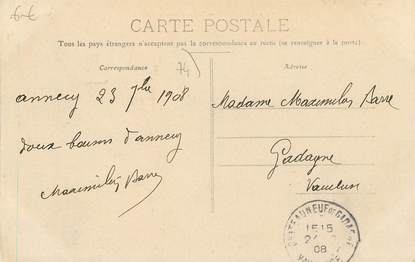 6-€
CARTE POSTALE
Tous les pays étrangers n'acceptent pas la correspondance au recto (se renseigner à la poste).
Correspondance
74
Adresse
annecy 23 7bre 1908
doux baisers d'annecy
Maximilien Barre
Madame Maximilien Barre
Gadagne
Vaucluse
CHATEAUNEUF-DE-GADAGNE
15 15
08